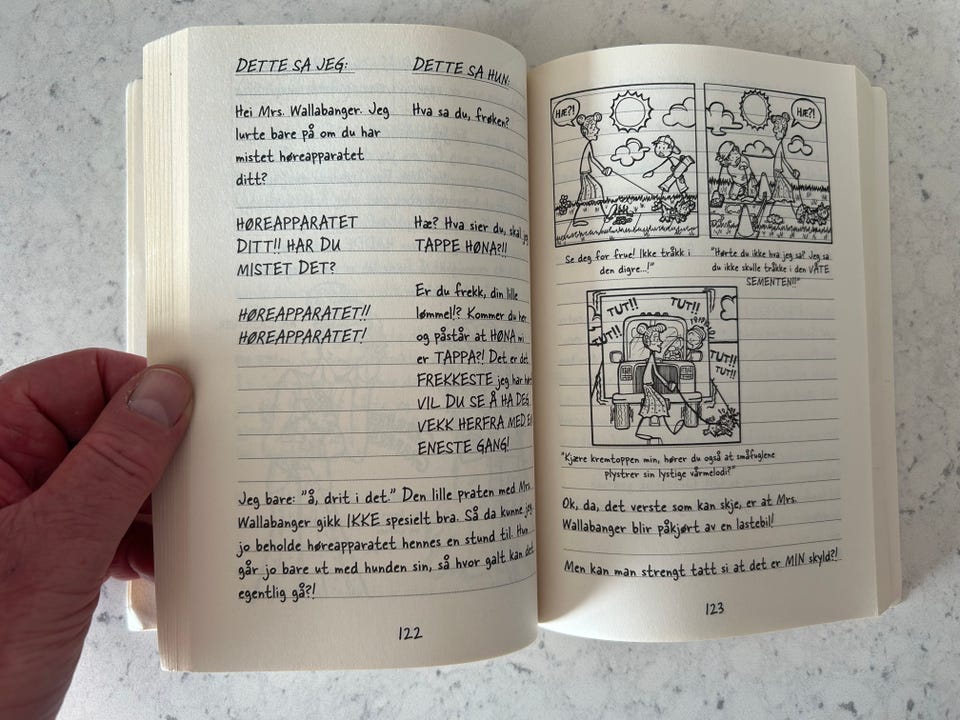 DETTE SA JEG:
DETTE SA HUN:
Hei Mrs. Wallabanger. Jeg
lurte bare på om du har
mistet høreapparatet
ditt?
Hva sa du, frøken?
HØREAPPARATET
DITT!! HAR DU
MISTET DET?
Hæ? Hva sier du, skal jeg
TAPPE HØNA?!!
HØREAPPARATET!!
HØREAPPARATET!
Er du frekk, din lille
lømmel!? Kommer du her
og påstår at HØNA mi
er TAPPA?! Det er det
FREKKESTE jeg har
VIL DU SE Å HA DEG
VEKK HERFRA MED
ENESTE GANG!
Jeg bare: "å, drit i det." Den lille praten med Mrs.
Wallabanger gikk IKKE spesielt bra. Så da kunne jeg
jo beholde høreapparatet hennes en stund til. Hun
går jo bare ut med hunden sin, så hvor galt kan det
egentlig gå?!
122
HÆ?!
HÆ?!
Se deg for frue! Ikke tråkk i
den digre...!"
"Hørte du ikke hva jeg sa? Jeg sa
du ikke skulle tråkke i den VÅTE
SEMENTEN!!"
TUT!!
TUT!!
TUT!!
TUT!!
TUT!!
"Kjære kremtoppen min, hører du også at småfuglene
plystrer sin lystige vårmelodi?"
Ok, da, det verste som kan skje, er at Mrs.
Wallabanger blir påkjørt av en lastebil!
Men kan man strengt tatt si at det er MIN skyld?!
123